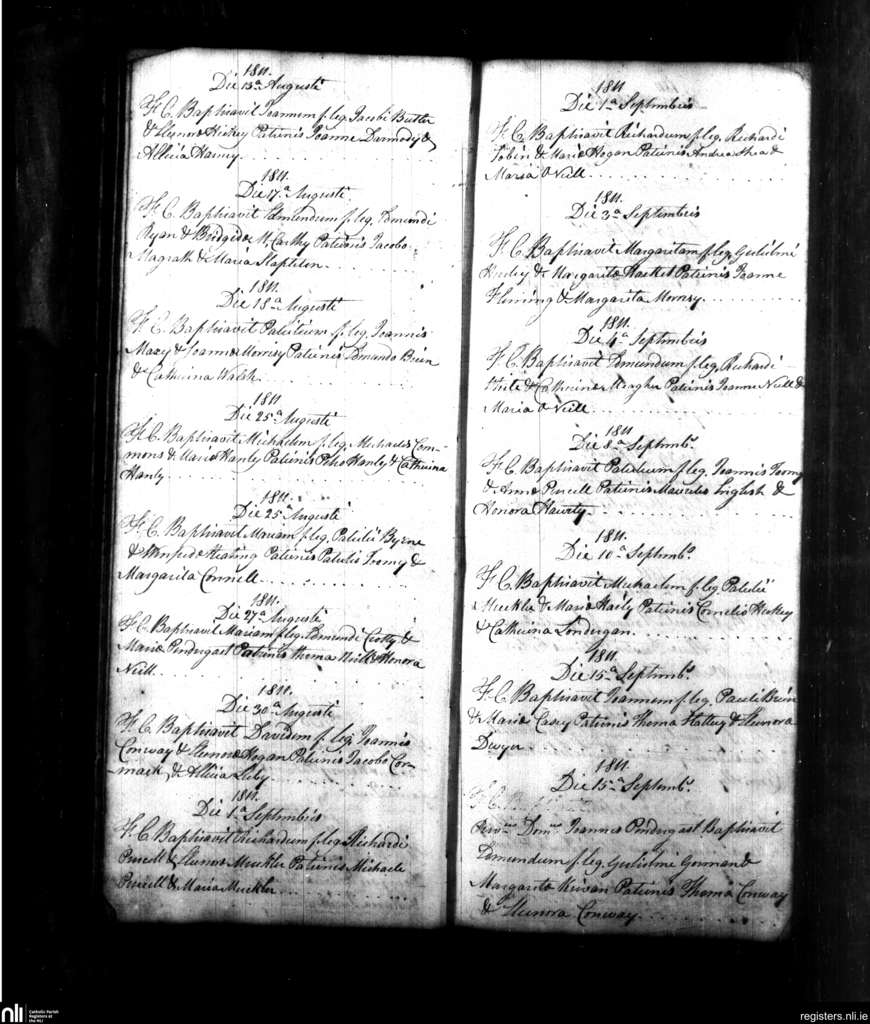 1811.
Die 13a Augusti
F. C. Baptisavit Joannem f. leg. Jacobi Butler
& Elenora Hickey Patrinis Joanne Darmody &
Allicia Harny
1811.
Die 17a Augusti
F. C. Baptisavit Edmundum f. leg. Edmundi
Ryan & Bridgida McCarthy Patrinis Jacobo
Magrath & Maria Stapleton
1811.
Die 18a Augusti
F. C. Baptisavit f. leg. Joannis
Mary & Joanna Morrisy Patrinis Edmundo Brien
& Catharina Walsh
1811
Die 25a Augusti
F. C. Baptisavit Michaelem f. leg. Michaelis Com-
mons & Maria Hanly Patrinis Petro Hanly & Catharina
Hanly
1811.
Die 25a Augusti
F. C. Baptisavit Mariam f. leg. Patritii Byrne
& Keating Patrinis Patritio Toomy &
Margarita Connell
1811.
Die 27a Augusti
F. C. Baptisavit Mariam f. leg. Edmundi Crotty &
Maria Pendergast Patrinis Thoma Neill & Honora
Neill
1811.
Die 30a Augusti
F. C. Baptisavit Davidem f. leg. Joannis
Conway & Elenora Hogan Patrinis Jacobo Cor-
mack & Allicia
1811.
Die 1a Septembris
F. C. Baptisavit Richardum f. leg. Richardi
Purcell & Elenora Meekler Patrinis Michaele
Purcell & Maria Meekler
1811
Die 1a Septembris
F. C. Baptisavit Richardum f. leg. Richardi
Tobin & Maria Hogan Patrinis Andrea Shea &
Maria O Neill
1811.
Die 3a Septembris
F. C. Baptisavit Margaritam f. leg. Gulielmi
& Margarita Hacket Patrinis Joanne
Fleming & Margarita Morrisy
1811.
Die 4a Septembris
F. C. Baptisavit Edmundum f. leg. Richardi
& Catherina Meagher Patrinis Joanne Neill &
Maria O Neill
1811
Die 8a Septmbs.
F. C. Baptisavit f. leg. Joannis Toomy
& Anna Purcell Patrinis English &
Honora
1811.
Die 10a Septmbs.
F. C. Baptisavit Michaelem f. leg. Patritii
Meekler & Maria Patrinis Cornelio Hickey
& Catherina Londergan
1811.
Die 15a Septmbs.
F. C. Baptisavit Joannem f. leg. Pauli Brien
& Maria Casey Patrinis Thoma Flattery & Elenora
Dwyer
1811.
Die 15a Septmbs.
Revdus Domus Joannes Pendergast Baptisavit
Edmundum f. leg. Gulielmi Gorman &
Margarita Kirwan Patrinis Thoma Conway
& Elenora Conway
nli
Catholic Parish
Registers at
the NLI
registers.nli.ie